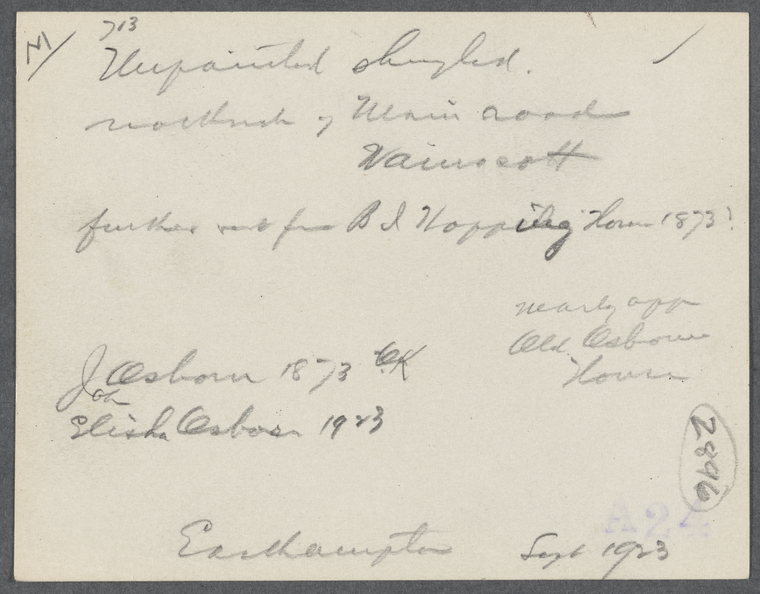 M/
713
Unpainted shingled.
north side of Main road
Wainscott
further east from B I Hopping House 1873?
nearly opp
Old Osborn
House
J Osborn 1873 OK
Joh
Elisha Osborn 1923
2896
A24
Easthampton Sept 1923